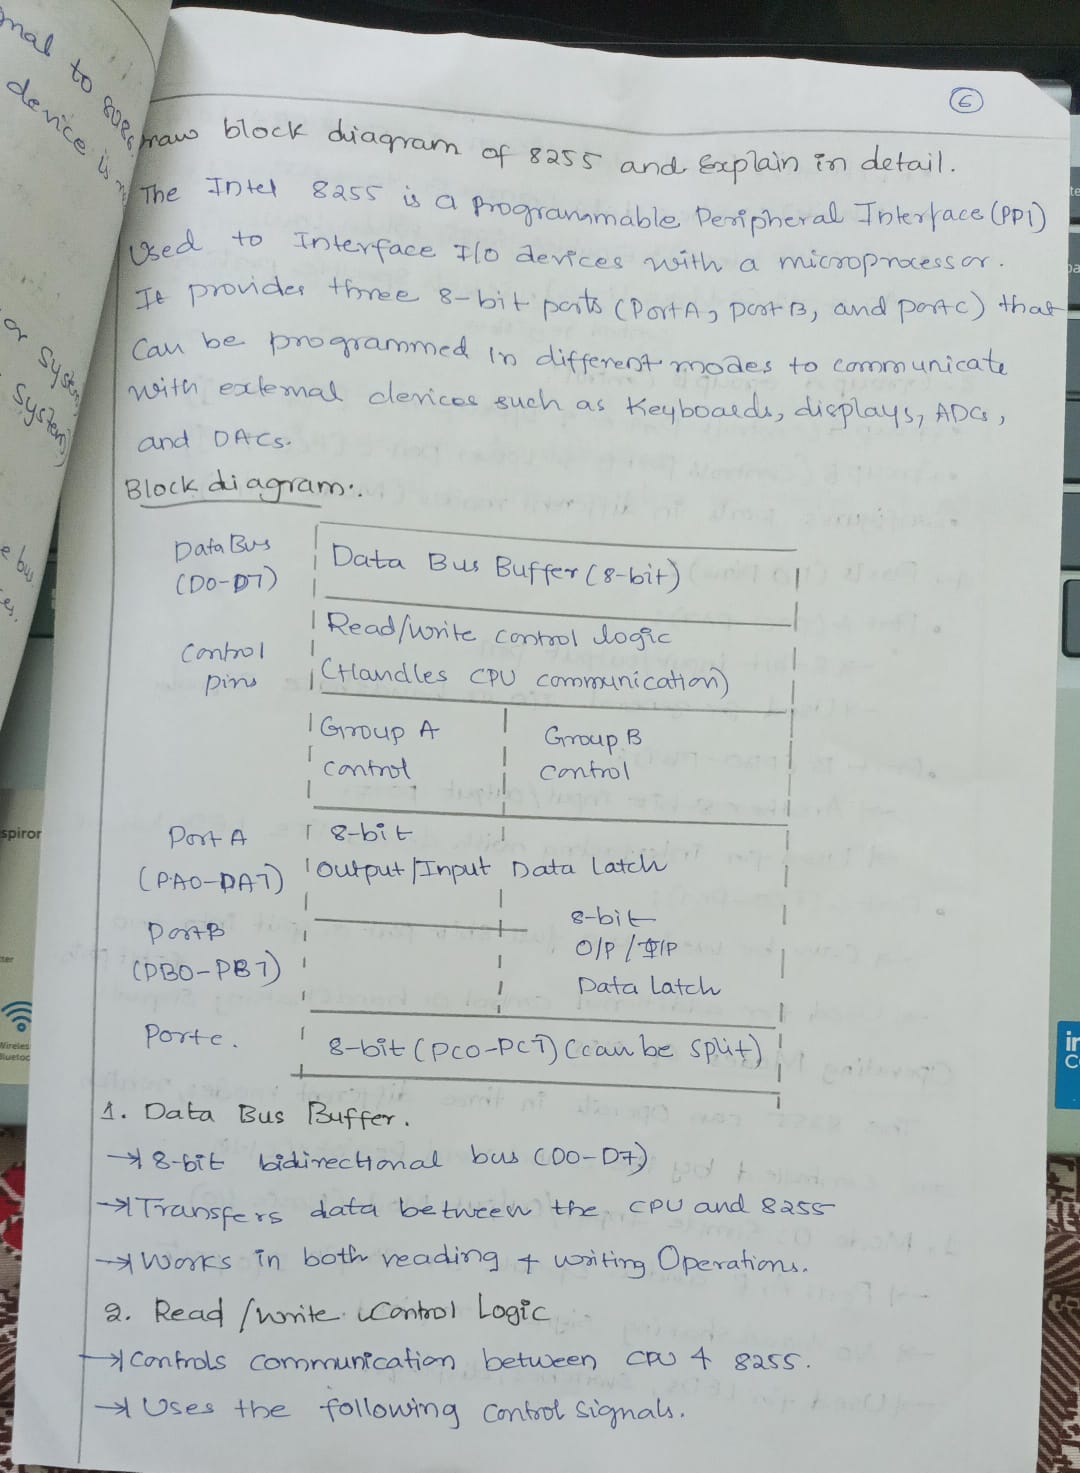 6
Draw block diagram of 8255 and Explain in detail.
The Intel 8255 is a Programmable Peripheral Interface (PPI)
Used to Interface I/O devices with a microprocessor.
It provides three 8-bit ports (Port A, port B, and port C) that
Can be programmed in different modes to communicate
with external devices such as Keyboards, displays, ADCs,
and DACs.
Block diagram:.
Data Bus
(D0-D7)
Data Bus Buffer (8-bit)
Control
pins
Read/write control logic
(Handles CPU communication)
Group A
control
Group B
control
Port A
(PA0-PA7)
8-bit
Output/Input Data Latch
Port B
(PB0-PB7)
8-bit
O/P / I/P
Data Latch
Port C.
8-bit (PC0-PC7) (can be split)
1. Data Bus Buffer.
→ 8-bit bidirectional bus (D0-D7)
→ Transfers data between the CPU and 8255
→ Works in both reading + writing Operations.
2. Read/write Control Logic
→ Controls communication between CPU & 8255.
→ Uses the following Control Signals.
onal to 8086
device is
or system
system)
e bus
spiron